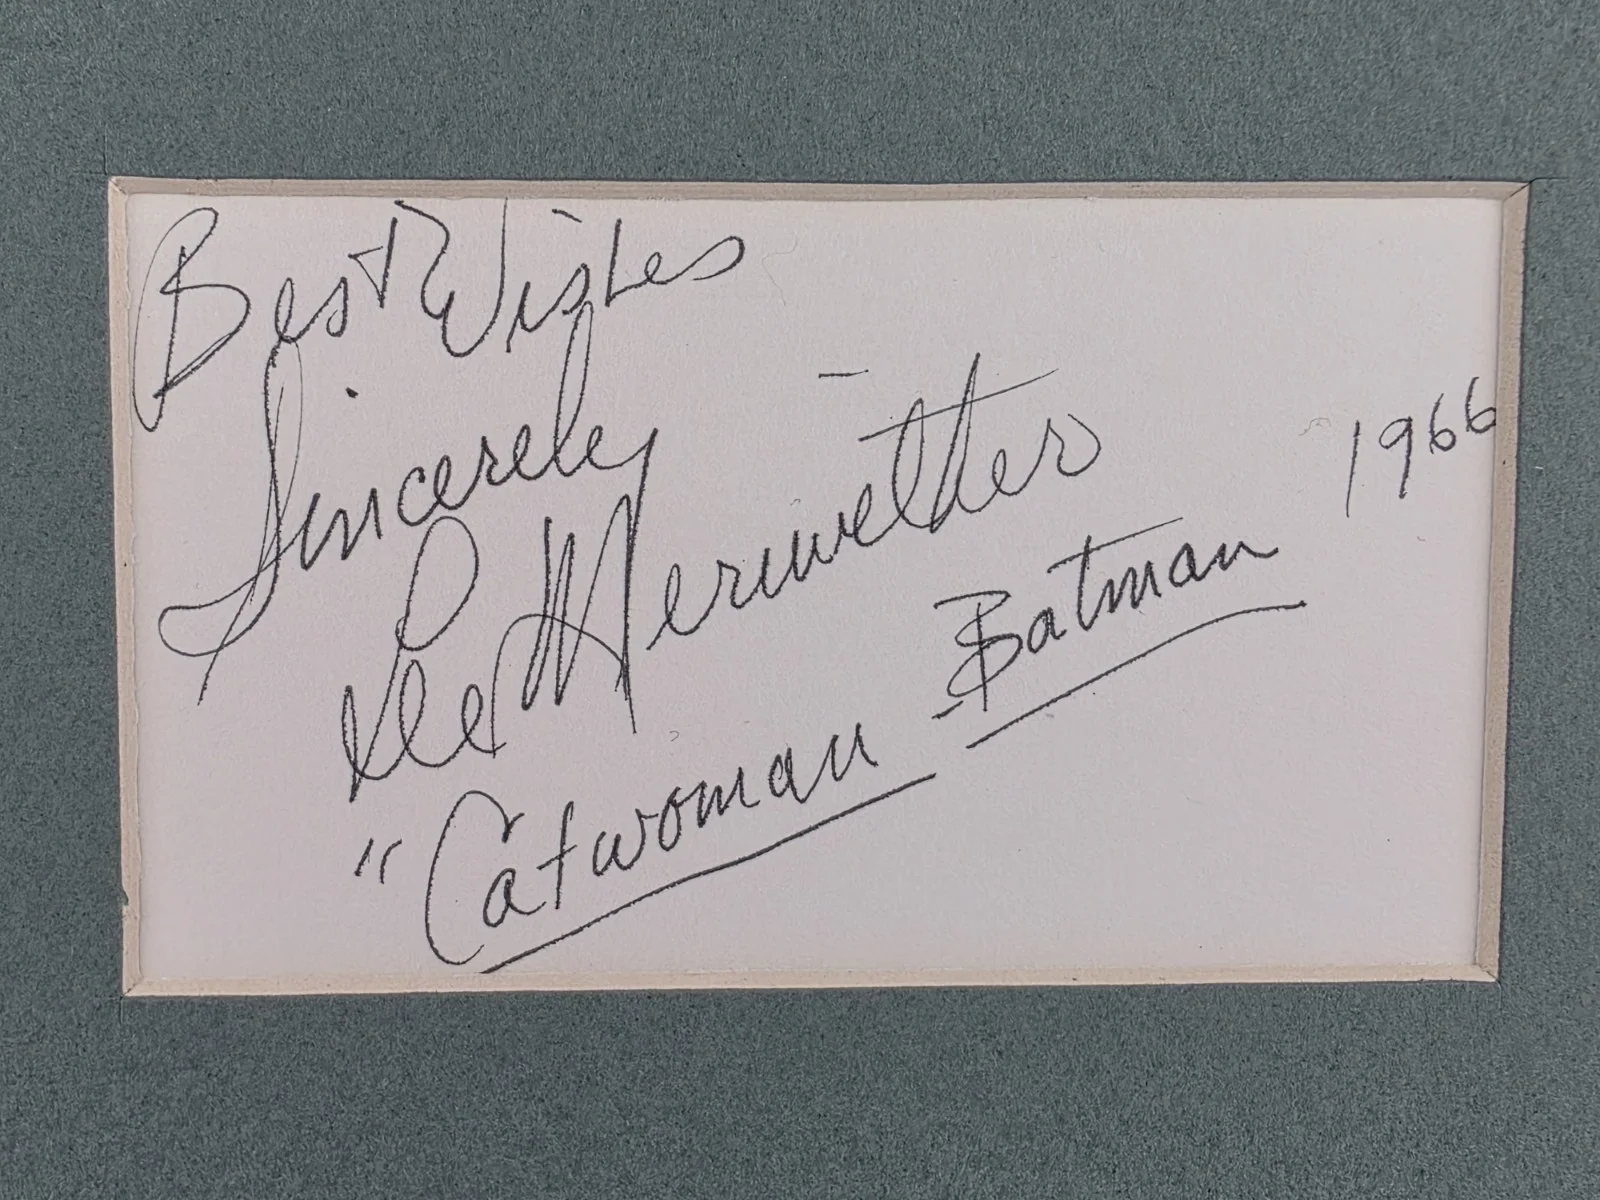 Best Wishes
Sincerely
Lee Meriwether
"Catwoman - Batman 1966